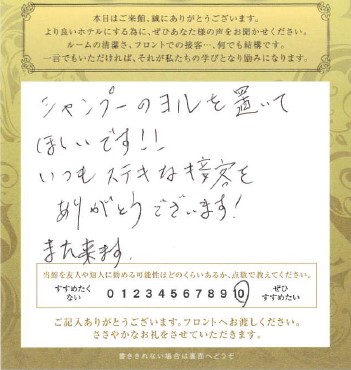 本日はご来館、誠にありがとうございます。
より良いホテルにする為に、ぜひあなた様の声をお聞かせください。
ルームの清潔さ、フロントでの接客…、何でも結構です。
一言でもいただければ、それが私たちの学びとなり励みになります。
シャンプーのヨルを置いて
ほしいです!!
いつもステキな接客を
ありがとうございます!
また来ます。
当館を友人や知人に勧める可能性はどのくらいあるか、点数で教えてください。
すすめたくない 0 1 2 3 4 5 6 7 8 9 10 ぜひすすめたい
ご記入ありがとうございます。フロントへお渡しください。
ささやかなお礼をさせていただきます。
書ききれない場合は裏面へどうぞ